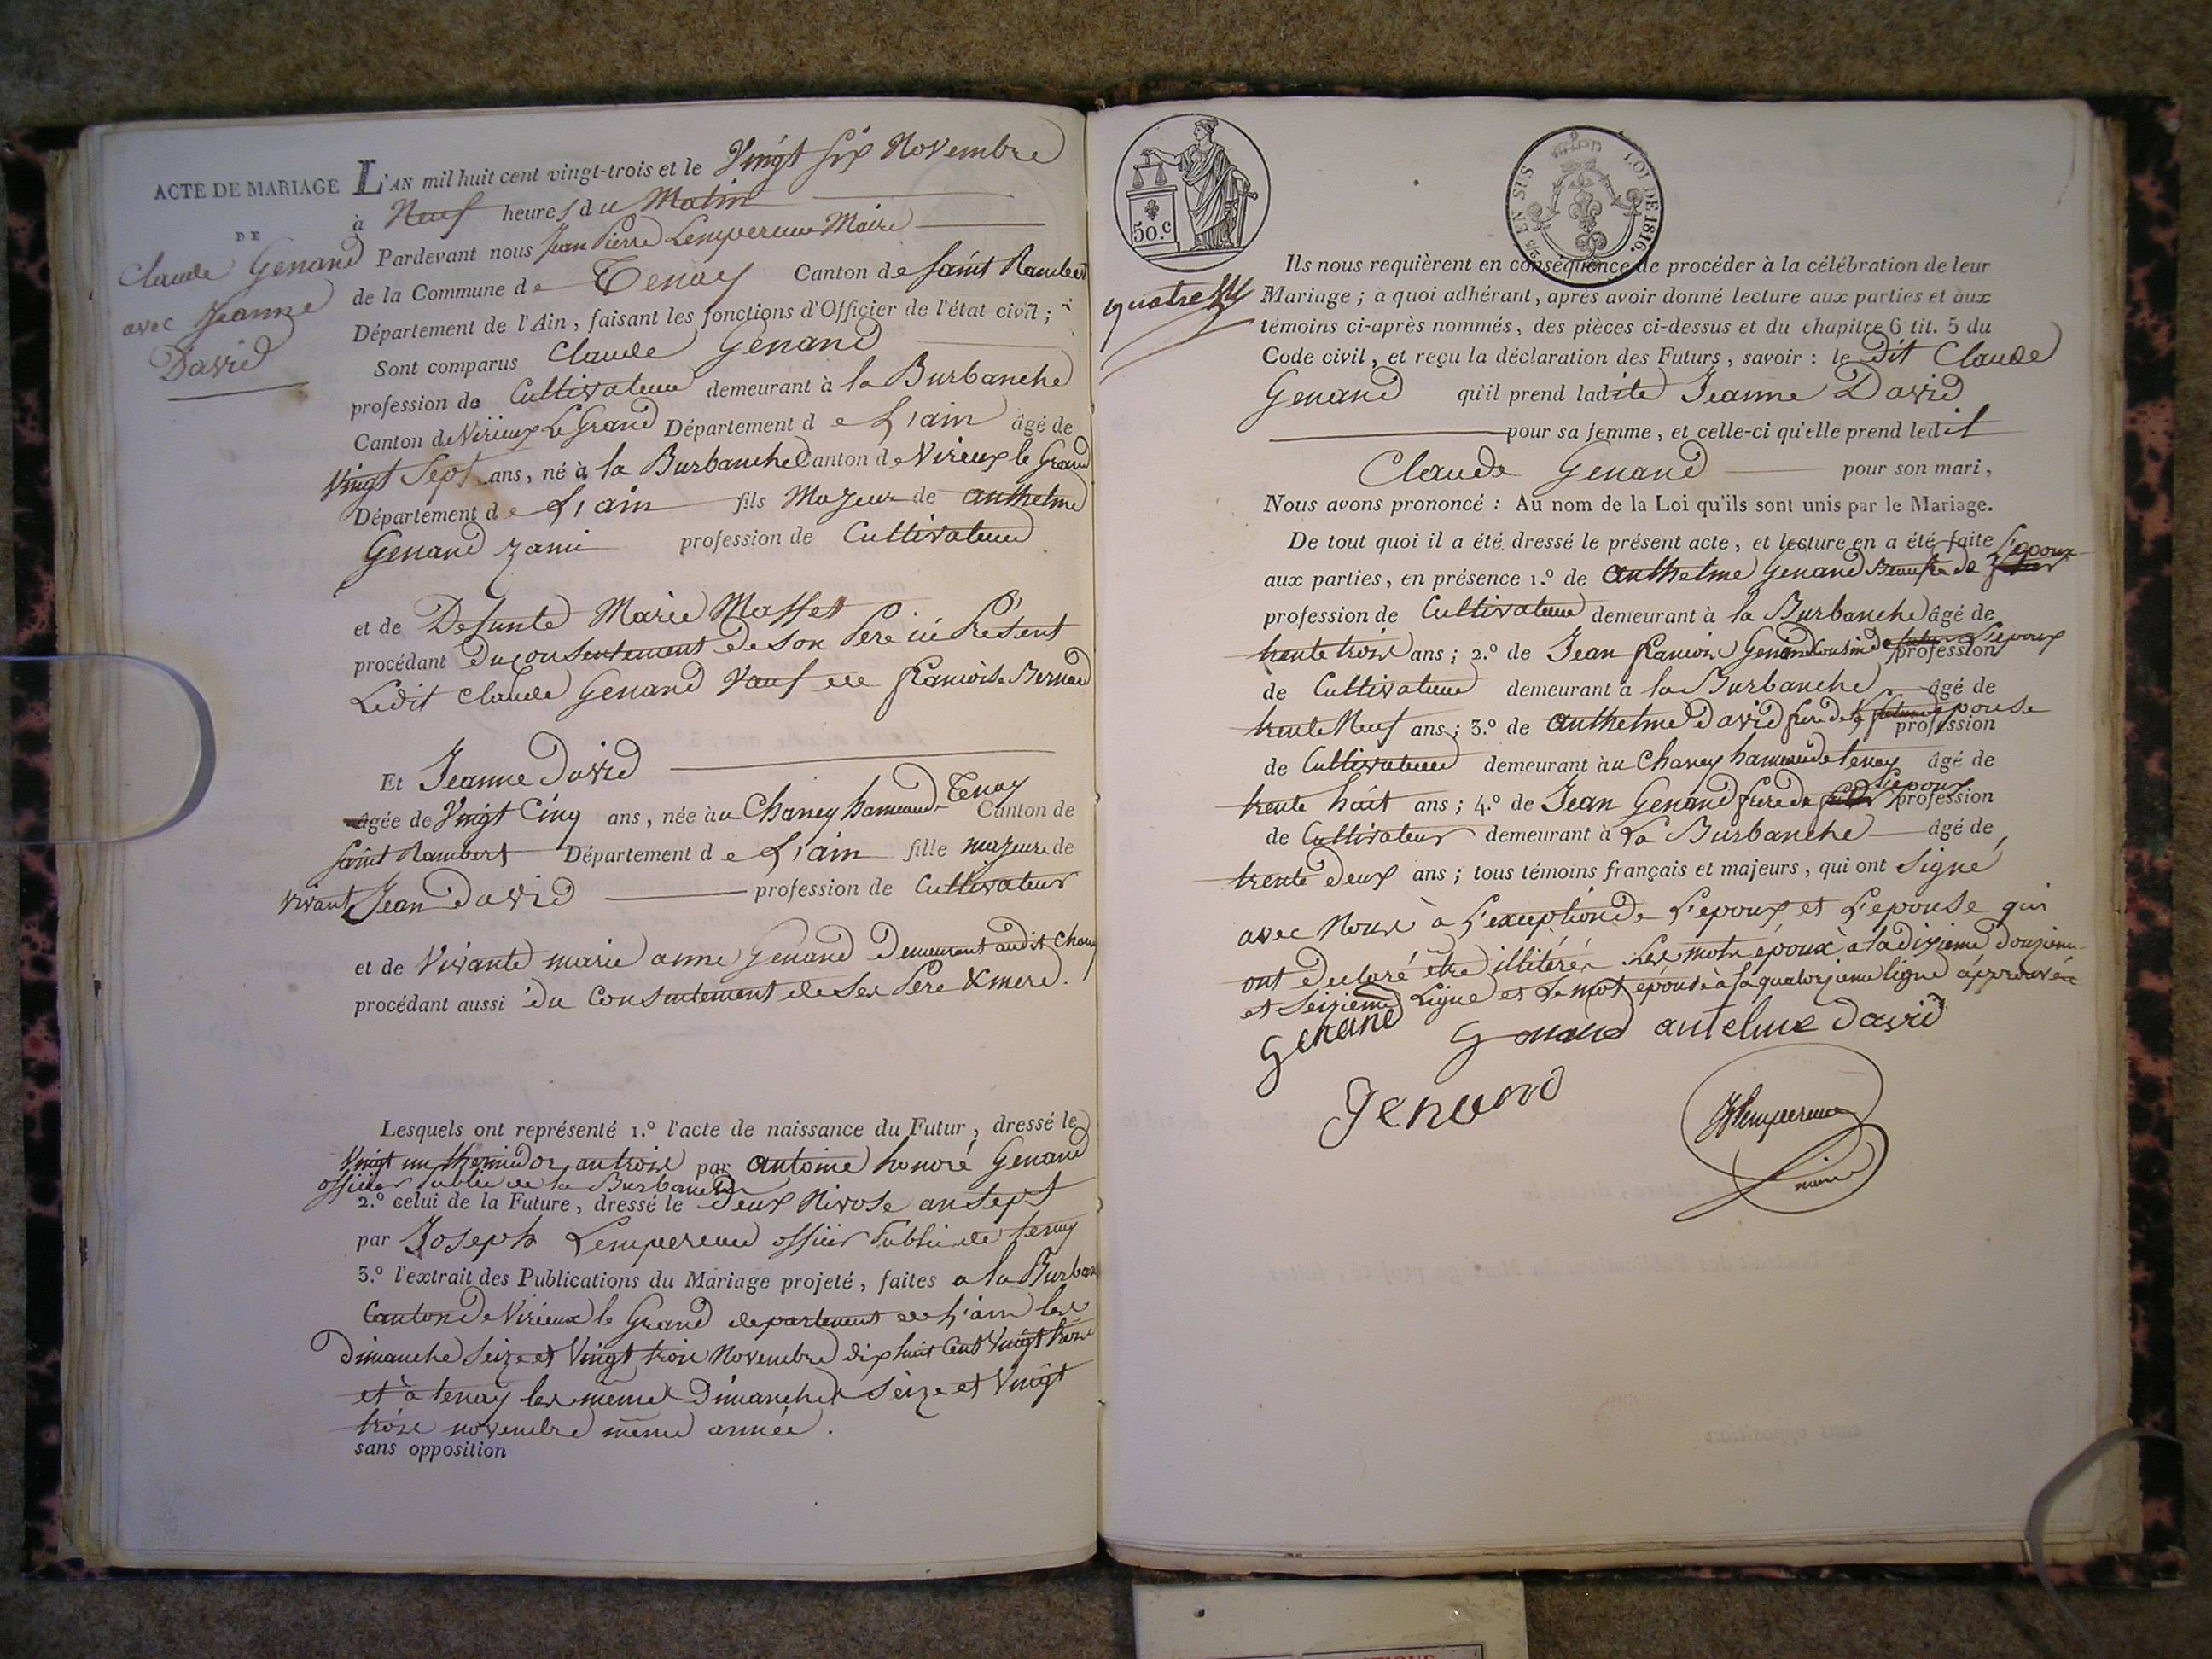 ACTE DE MARIAGE
DE
Claude Genand
avec Jeanne
David
L'AN mil huit cent vingt-trois et le Vingt Six Novembre
à Neuf heures du Matin
Pardevant nous Jean Pierre Lempereur Maire
de la Commune de Tenay Canton de Saint Rambert
Département de l'Ain, faisant les fonctions d'Officier de l'état civil;
Sont comparus Claude Genand
profession de Cultivateur demeurant à la Burbanche
Canton de Virieux Le Grand Département de L'ain âgé de
Vingt Sept ans, né à la Burbanche Canton de Virieux le Grand
Département de L'ain fils Majeur de anthelme
Genand profession de Cultivateur
et de Defunte Marie Masset
procédant du consentement de son Pere ici Présent
Ledit Claude Genand Vauf de francoise Bernard
Et Jeanne David
âgée de Vingt Cinq ans, née au Chaney hameau de Tenay Canton de
saint Rambert Département de L'ain fille majeure de
vivant Jean David profession de Cultivateur
et de Vivante marie anne Genand Demeurant audit Chaney
procédant aussi du Consentement de ses Pere & mere.
Lesquels ont représenté 1.º l'acte de naissance du Futur, dressé le
Vingt un thermidor an trois par antoine honoré Genand
officier Public de la Burbanche
2.º celui de la Future, dressé le Deux Nivose an sept
par Joseph Lempereur officier Public de tenay
3.º l'extrait des Publications du Mariage projeté, faites a la Burban
Canton de Virieux le Grand departement de L'ain les
Dimanche Seize et Vingt trois Novembre dix huit Cent Vingt trois
et à tenay les meme Dimanches seize et Vingt
trois novembre meme année.
sans opposition
50.c
EN SUS LOI DE 1816.
quatre
Ils nous requièrent en conséquence de procéder à la célébration de leur
Mariage; à quoi adhérant, après avoir donné lecture aux parties et aux
témoins ci-après nommés, des pièces ci-dessus et du chapitre 6 tit. 5 du
Code civil, et reçu la déclaration des Futurs, savoir: le dit Claude
Genand qu'il prend ladite Jeanne David
pour sa femme, et celle-ci qu'elle prend ledit
Claude Genand pour son mari,
Nous avons prononcé: Au nom de la Loi qu'ils sont unis par le Mariage.
De tout quoi il a été dressé le présent acte, et lecture en a été faite
aux parties, en présence 1.º de anthelme Genand de L'epoux
profession de Cultivateur demeurant à la Burbanche âgé de
trente trois ans; 2.º de Jean francois Genand Cousin de L'epoux profession
de Cultivateur demeurant à la Burbanche âgé de
trente Neuf ans; 3.º de anthelme David frere de L'epouse profession
de Cultivateur demeurant au Chaney hameau de tenay âgé de
trente huit ans; 4.º de Jean Genand frere de L'epoux profession
de Cultivateur demeurant à La Burbanche âgé de
trente deux ans; tous témoins français et majeurs, qui ont Signé
avec Nous à L'exception de L'epoux et L'epouse qui
ont declaré être illitérés. Les mots époux à la dixieme douzieme
et seizieme Ligne et Le mot epouse à la quatorzieme ligne approuvés
Genand Genand antelme David
Genand JPLempereur
maire